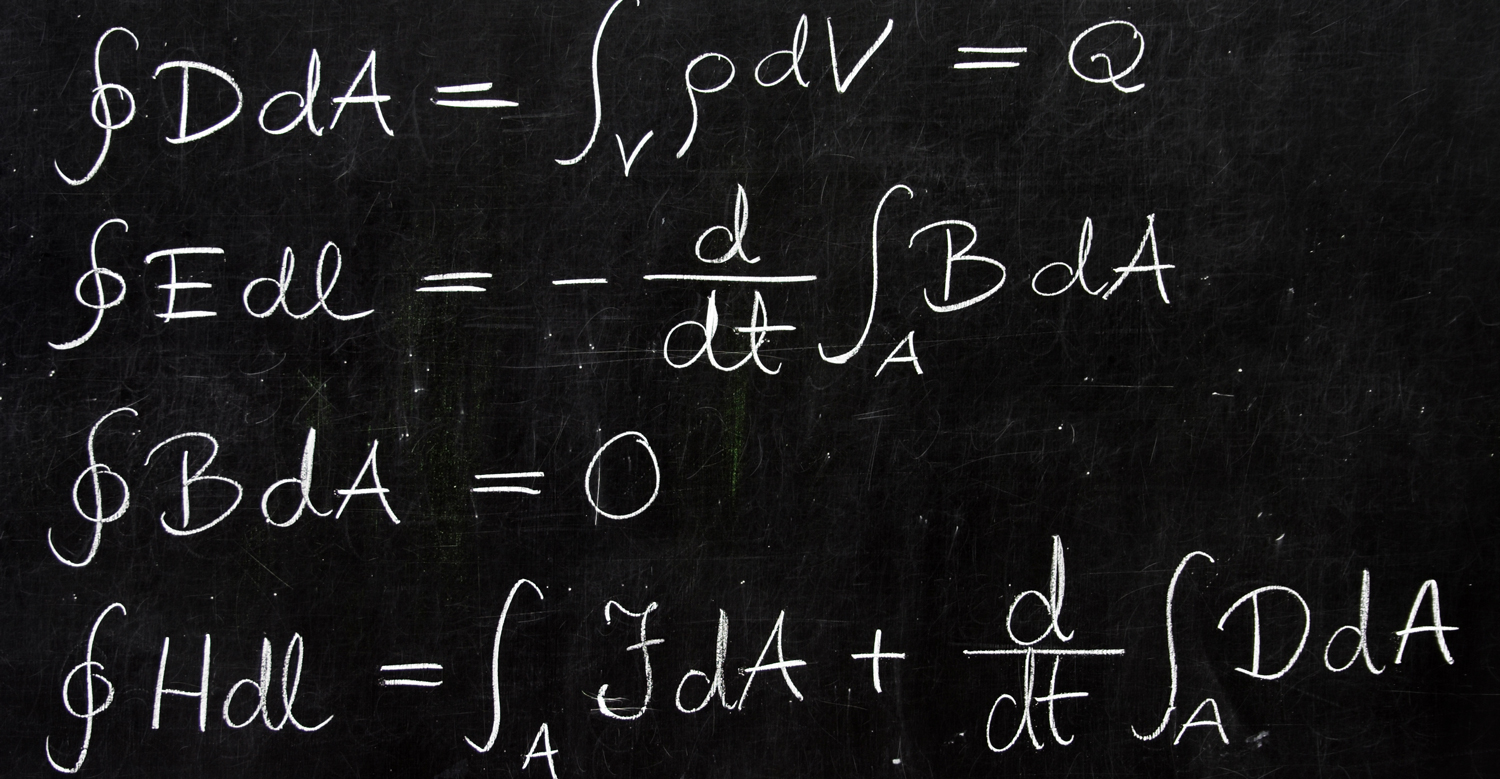 ∮ D dA = ∫_V ρ dV = Q
∮ E dl = - d/dt ∫_A B dA
∮ B dA = 0
∮ H dl = ∫_A J dA + d/dt ∫_A D dA